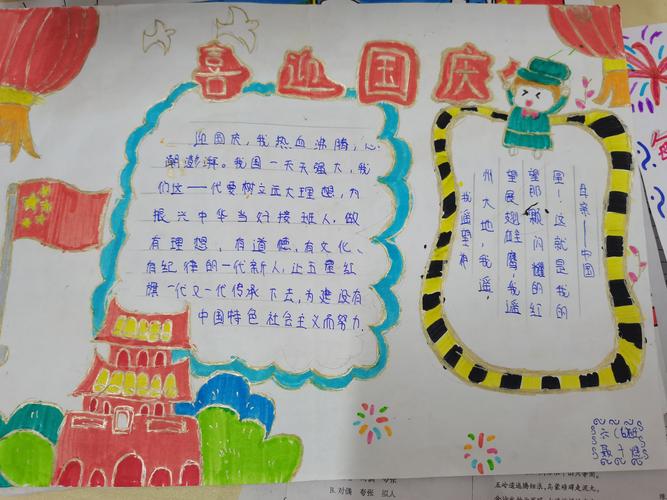 喜迎国庆
迎国庆，我热血沸腾，心
潮澎湃。我国一天天强大，我
们这一代要树立远大理想，为
振兴中华当好接班人，做
有理想，有道德，有文化、
有纪律的一代新人，让五星红
旗一代又一代传承下去，为建设有
中国特色社会主义而努力.
我遥望神
州大地，我遥
望展翅雄鹰，我遥
望那颗闪耀的红
星！这就是我的
母亲——中国
B. 对偶 夸张 拟人
五岭逶迤腾细浪，乌蒙磅礴走泥丸。